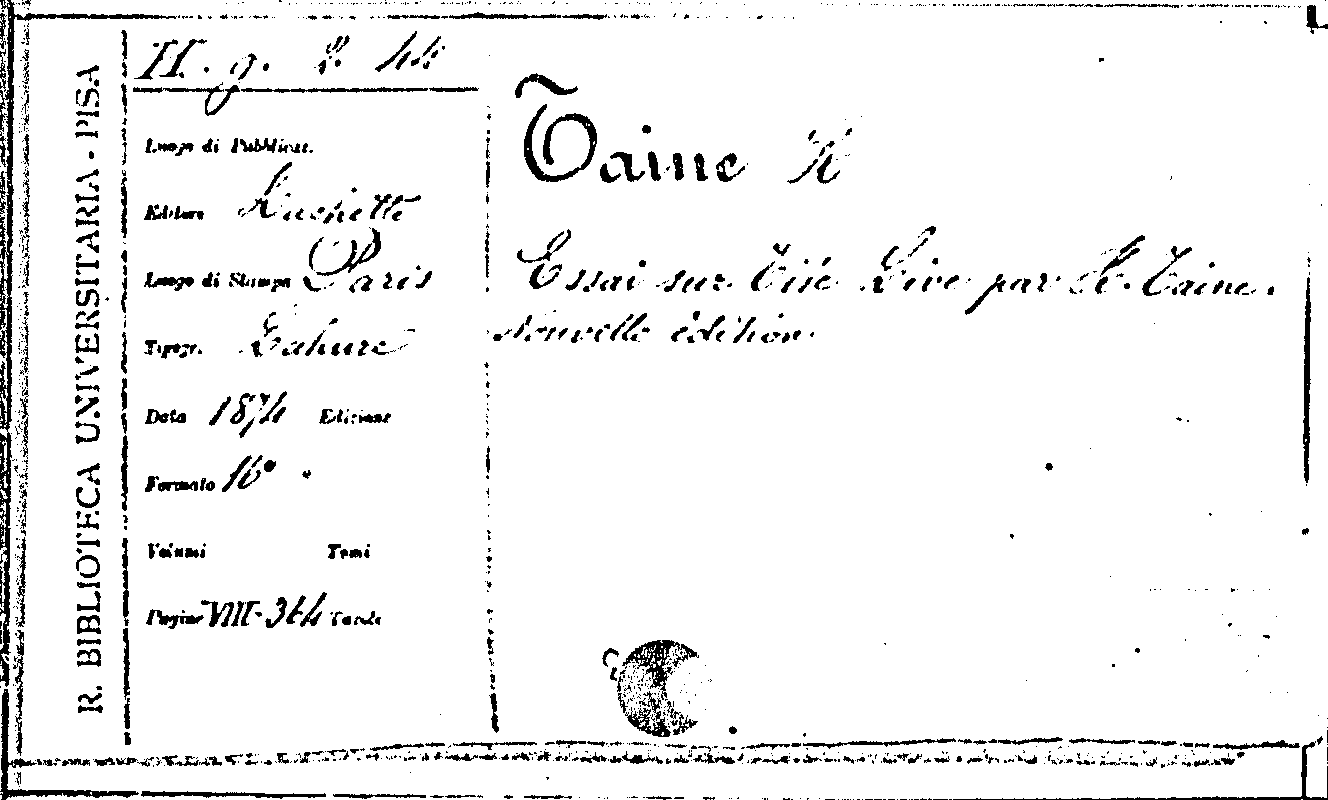 R. BIBLIOTECA UNIVERSITARIA - PISA
H. g. 8. 44
Luogo di Pubblicaz.
Editore Hachette
Luogo di Stampa Paris
Tipogr. Lahure
Data 1874 Edizione
Formato 16°
Volumi Tomi
Pagine VIII-364 Tavole
Taine H
Essai sur Tite Live par H. Taine.
Nouvelle édition.